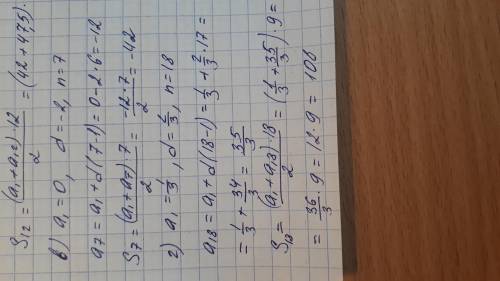 S₁₂ = (a₁+a₁₂)·12/2 = (42+47,5)·
в) a₁ = 0, d = -2, n = 7
a₇ = a₁ + d(7-1) = 0-2·6 = -12
S₇ = (a₁+a₇)·7/2 = -12·7/2 = -42
г) a₁ = 1/3, d = 2/3, n = 18
a₁₈ = a₁ + d(18-1) = 1/3 + 2/3·17 =
= 1/3 + 34/3 = 35/3
S₁₈ = (a₁+a₁₈)·18/2 = (1/3 + 35/3)·9 =
= 36/3·9 = 12·9 = 108